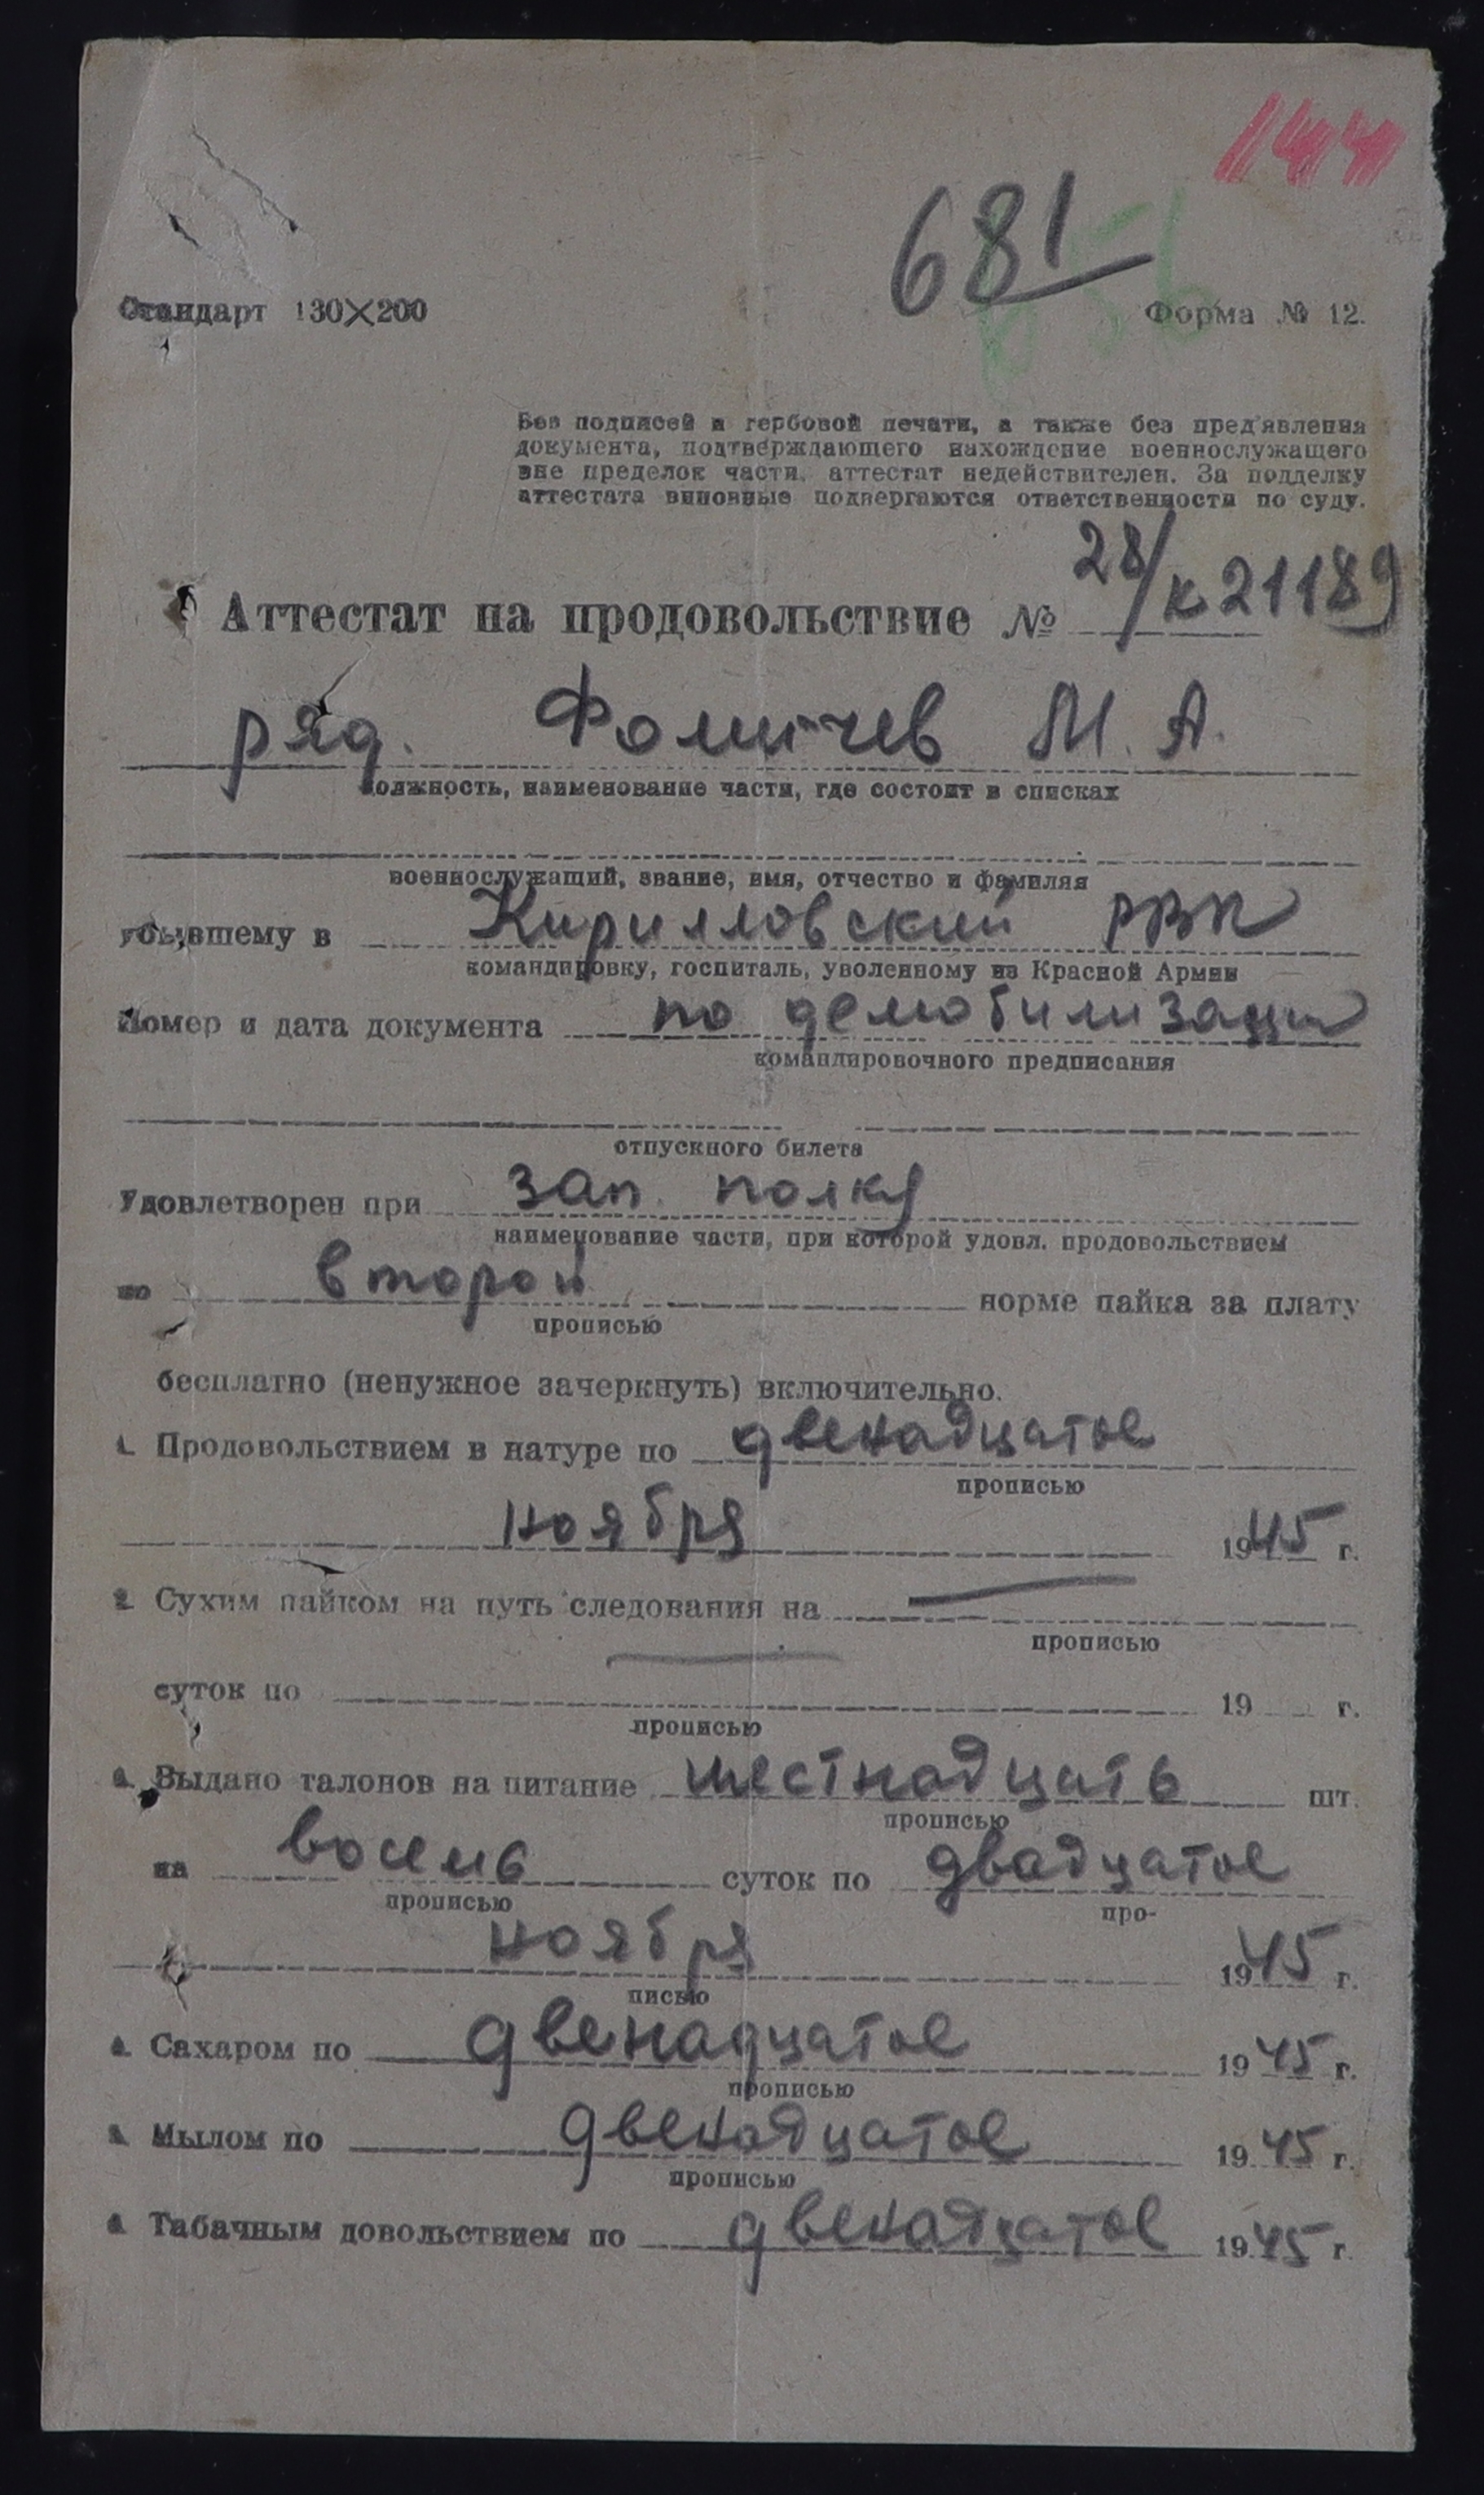 144
681
656
Стандарт 130×200
Форма № 12.
Без подписей и гербовой печати, а также без пред'явления
документа, подтверждающего нахождение военнослужащего
вне пределок части, аттестат недействителен. За подделку
аттестата виновные подвергаются ответственности по суду.
Аттестат на продовольствие № 28/к21189
ряд. Фомичев М. А.
должность, наименование части, где состоит в списках
военнослужащий, звание, имя, отчество и фамиляя
убывшему в Кирилловский РВК
командировку, госпиталь, уволенному из Красной Армии
Номер и дата документа по демобилизации
командировочного предписания
отпускного билета
Удовлетворен при зап. полку
наименование части, при которой удовл. продовольствием
по второй норме пайка за плату
прописью
бесплатно (ненужное зачеркнуть) включительно.
1. Продовольствием в натуре по двенадцатое
прописью
ноября 1945 г.
2. Сухим пайком на путь следования на —
прописью
суток по — 19 г.
прописью
3. Выдано талонов на питание шестнадцать шт.
прописью
на восемь суток по двадцатое
прописью про-
ноября 1945 г.
писью
4. Сахаром по двенадцатое 1945 г.
прописью
5. Мылом по двенадцатое 1945 г.
прописью
6. Табачным довольствием по двенадцатое 1945 г.